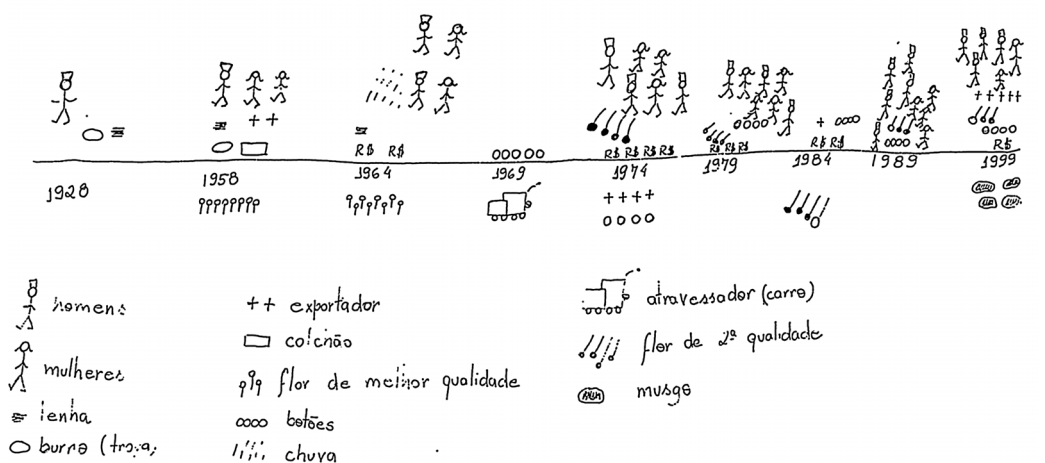 R$ R$
R$ R$ R$ R$
R$ R$ R$
R$ R$
R$
1928
1958
1964
1969
1974
1979
1984
1989
1999
homens
mulheres
lenha
burro (troça;
++ exportador
colchão
flor de melhor qualidade
botões
chuva
atravessador (carro)
flor de 2ª qualidade
musgo